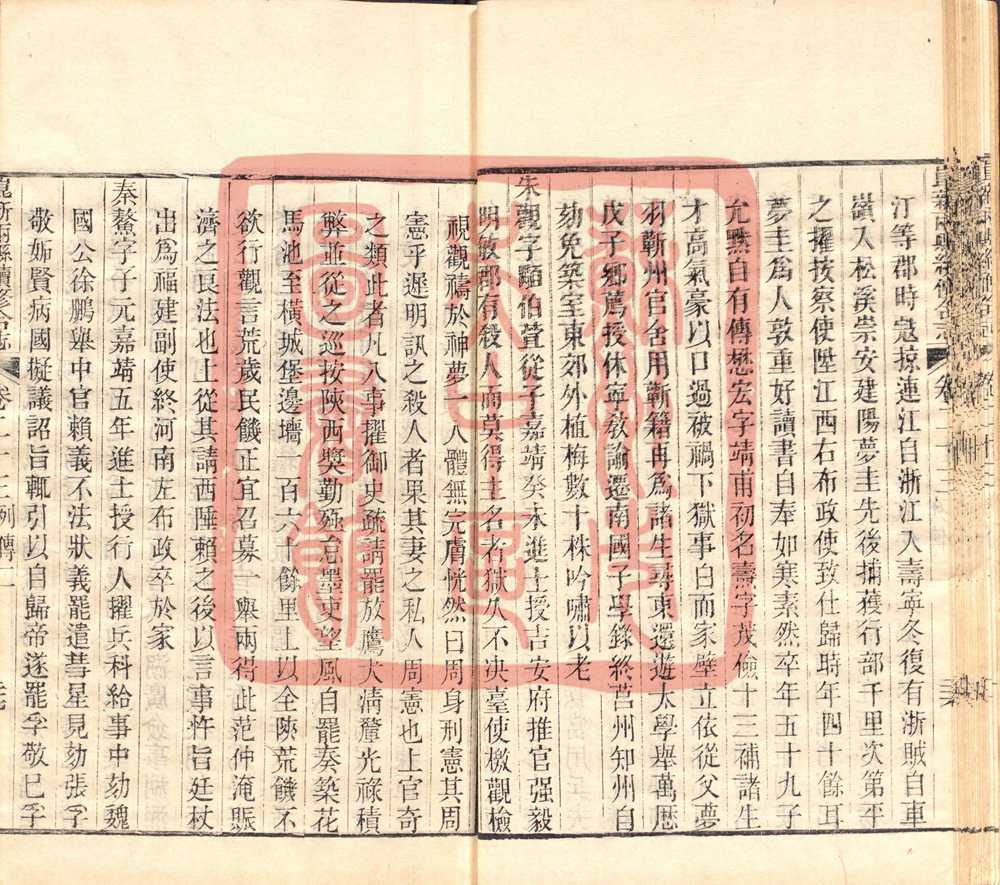 汀等郡時寇掠連江自浙江入壽寧冬復有浙賊自車
嶺入松溪崇安建陽夢圭先後捕獲行部千里次第平
之擢按察使陞江西右布政使致仕歸時年四十餘耳
夢圭爲人敦重好讀書自奉如寒素然卒年五十九子
允默自有傳懋宏字靖甫初名壽字茂儉十三補諸生
才高氣豪以口過被禍下獄事白而家壁立依從父夢
羽蘄州官舍用蘄籍再爲諸生尋東還遊太學舉萬厯
戊子鄉薦授休寧敎諭遷南國子學錄終莒州知州自
劾免築室東郊外植梅數十株吟嘯以老
朱觀字顒伯萱從子嘉靖癸未進士授吉安府推官强毅
明敏郡有殺人而莫得主名者獄久不决臺使檄觀檢
視觀禱於神夢一人體無完膚恍然曰周身刑憲其周
憲乎遲明訊之殺人者果其妻之私人周憲也上官奇
之類此者凡八事擢御史疏請罷放鷹犬淸釐光祿積
弊並從之巡按陝西奬勤殛怠墨吏望風自罷奏築花
馬池至橫城堡邊墻一百六十餘里上以全陝荒饑不
欲行觀言荒歲民饑正宜召募一舉兩得此范仲淹賑
濟之良法也上從其請西陲賴之後以言事忤旨廷杖
出爲福建副使終河南左布政卒於家
秦鰲字子元嘉靖五年進士授行人擢兵科給事中劾魏
國公徐鵬舉中官賴義不法狀義罷遣彗星見劾張孚
敬妬賢病國擬議詔旨輒引以自歸帝遂罷孚敬已孚
崑新兩縣續修合志 卷二十三 列傳二